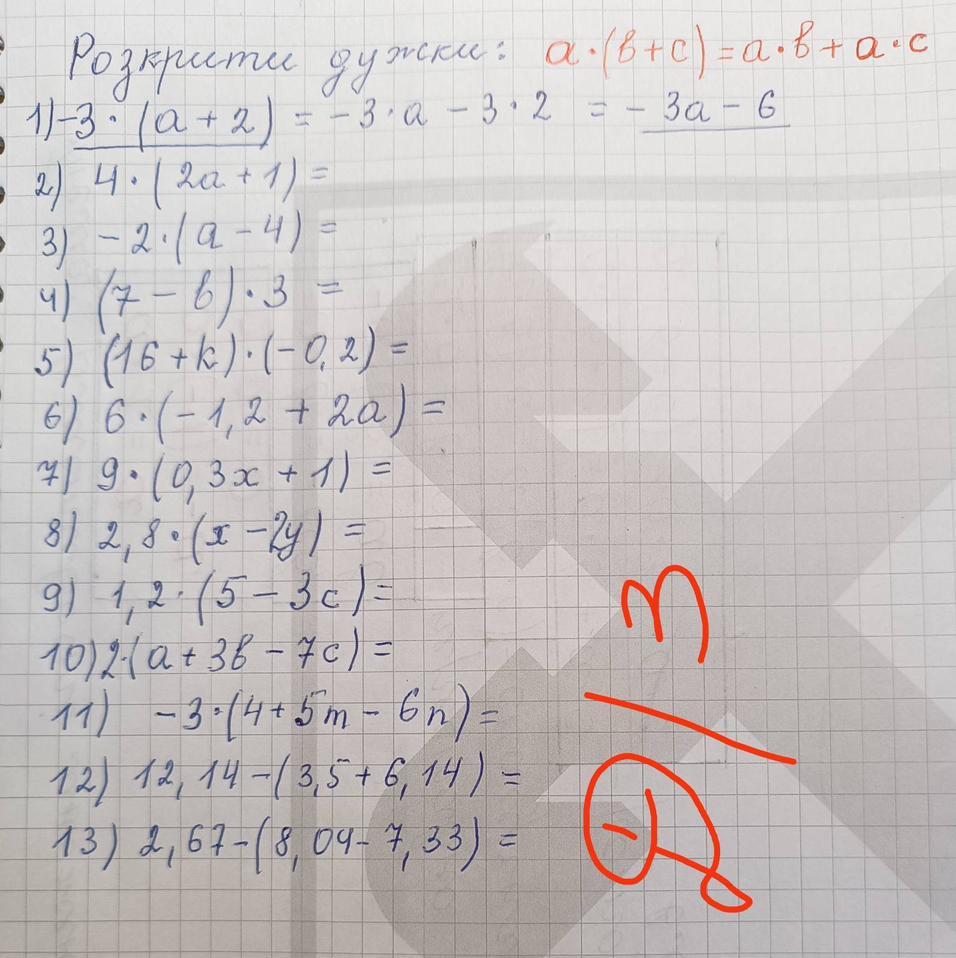 Розкрити дужки: a·(b+c)=a·b+a·c
1) -3·(a+2) = -3·a - 3·2 = - 3a - 6
2) 4·(2a+1)=
3) -2·(a-4)=
4) (7-b)·3 =
5) (16+k)·(-0,2)=
6) 6·(-1,2+2a)=
7) 9·(0,3x+1)=
8) 2,8·(x-2y)=
9) 1,2·(5-3c)=
10) 2·(a+3b-7c)=
11) -3·(4+5m-6n)=
12) 12,14-(3,5+6,14)=
13) 2,67-(8,04-7,33)=